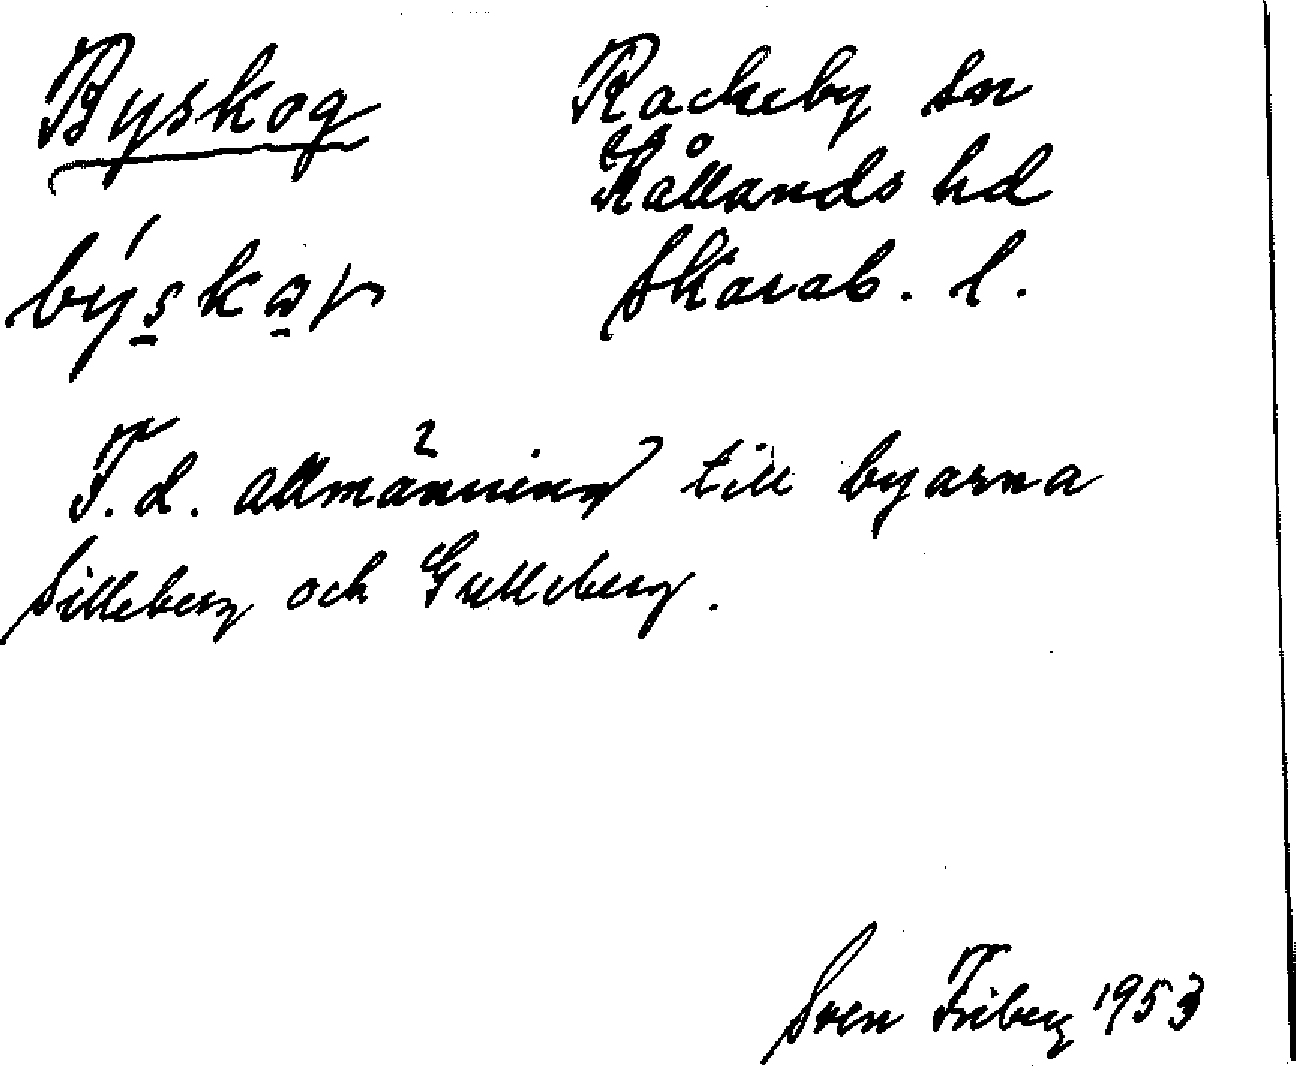 Byskog
Rackeby sn
Kållands hd
Skarab. l.
F.d. allmänning till byarna
Silleberg och Gulleberg.
Sven Friberg 1953